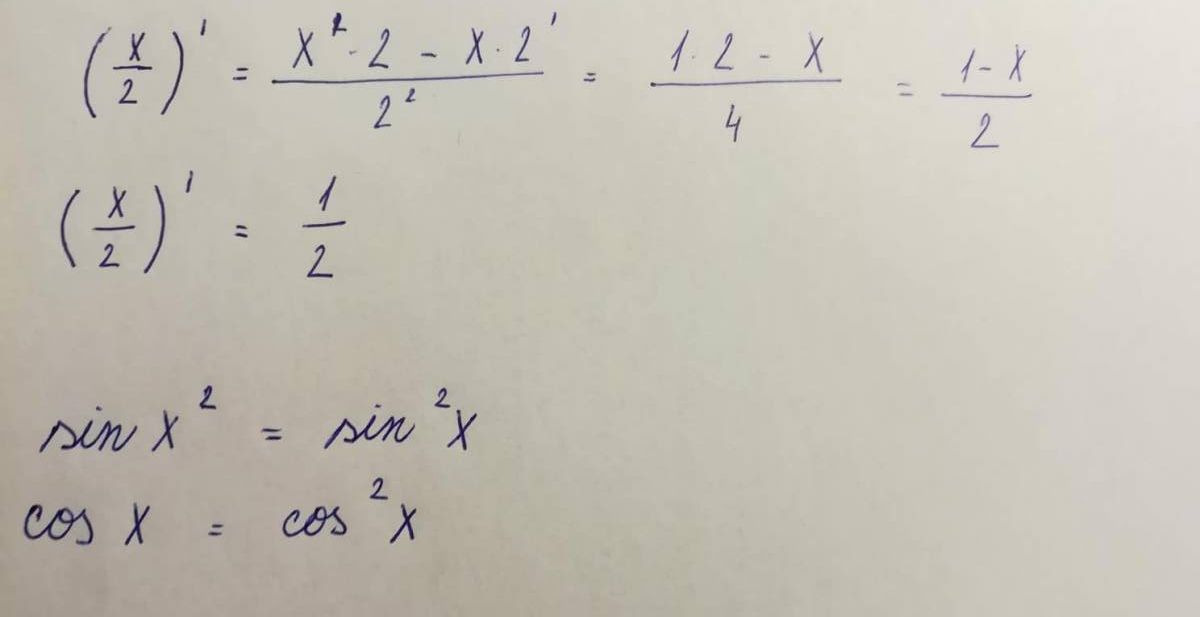 (x/2)' = (x² · 2 - x · 2')/2² = (1 · 2 - x)/4 = (1 - x)/2
(x/2)' = 1/2
sin x² = sin² x
cos x = cos² x